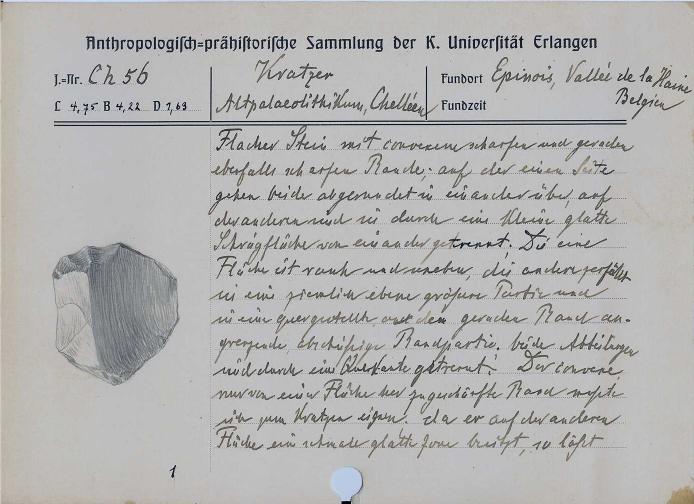 Anthropologisch=prähistorische Sammlung der K. Universität Erlangen
J.=Nr. Ch 56
L 4,75 B 4,22 D 1,63
Kratzer
Altpalaeolithikum, Chelléen
Fundort Epinois, Vallée de la Haine
Belgien
Fundzeit
Flacher Stein mit convexem scharfen und geraden
ebenfalls scharfen Rande; auf der einen Seite
gehen beide abgerundet in einander über, auf
der anderen sind sie durch eine kleine glatte
Schrägfläche von einander getrennt. Die eine
Fläche ist rauh und uneben, die andere zerfällt
in eine ziemlich ebene größere Partie und
in eine quergestellte an den geraden Rand an-
grenzende abschüßige Randpartie. beide Abteilungen
sind durch eine Querkante getrennt. Der convexe
nur von einer Fläche her zugeschärfte Rand
sich zum Kratzen eignen. da er auf der anderen
Fläche eine schmale glatte Zone besitzt, so läßt
1